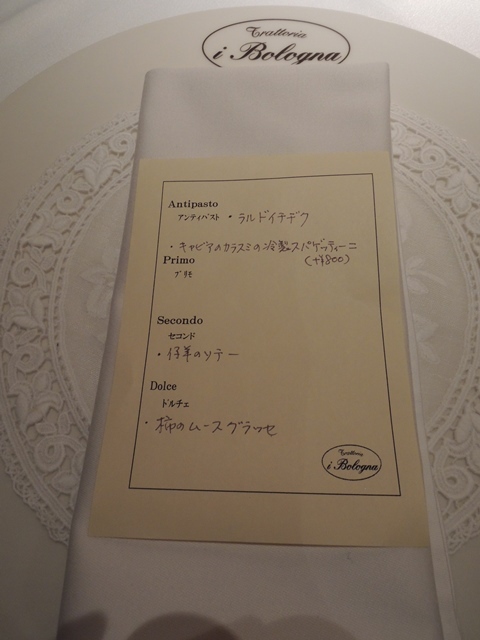 Trattoria
i Bologna
Antipasto
アンティパスト ・ラルドイチヂク
・キャビアのカラスミの冷製スパゲッティーニ
Primo (+¥800)
プリモ
Secondo
セコンド
・仔羊のソテー
Dolce
ドルチェ
・柿のムースグラッセ
Trattoria
i Bologna